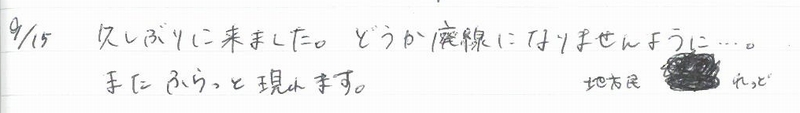 9/15 久しぶりに来ました。どうか廃線になりませんように…。
またふらっと現れます。 地方民 れっど